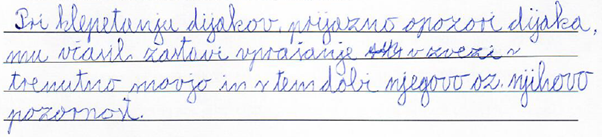 Pri klepetanju dijakov, prijazno opozori dijaka,
mu včasih zastavi vprašanje v zvezi s
trenutno snovjo in s tem dobi njegovo oz. njihovo
pozornost.